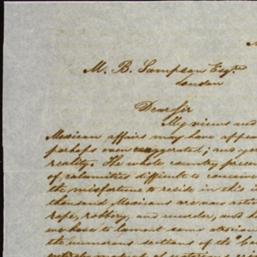 M. B. Sampson Esqr.
London
Dear Sir
My views and
Mexican affairs may have appea
perhaps even exaggerated; and ye
reality. The whole country prese
of calamities difficult to conceiv
the misfortune to reside in this i
thousand Mexicans are now activ
rape, robbery, and murder, and h
we have to lament some atroci
the numerous sections of the